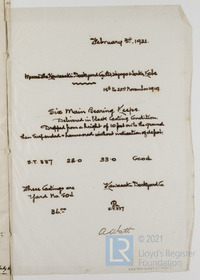 February 3rd, 1921.
Messrs The Kawasaki Dockyard Co. Ltd, Hyogo Works, Kobe
16th to 25th November 1919
Six Main Bearing Keeps
Delivered in black Casting Condition
Dropped from a height of 10 feet on to the ground
then suspended & hammered without indication of defect.
S.T. 887 28.0 33.0 Good
These Castings are Kawasaki Dockyard Co
Yard No. 504
© 2021
Lloyd's Register
Foundation